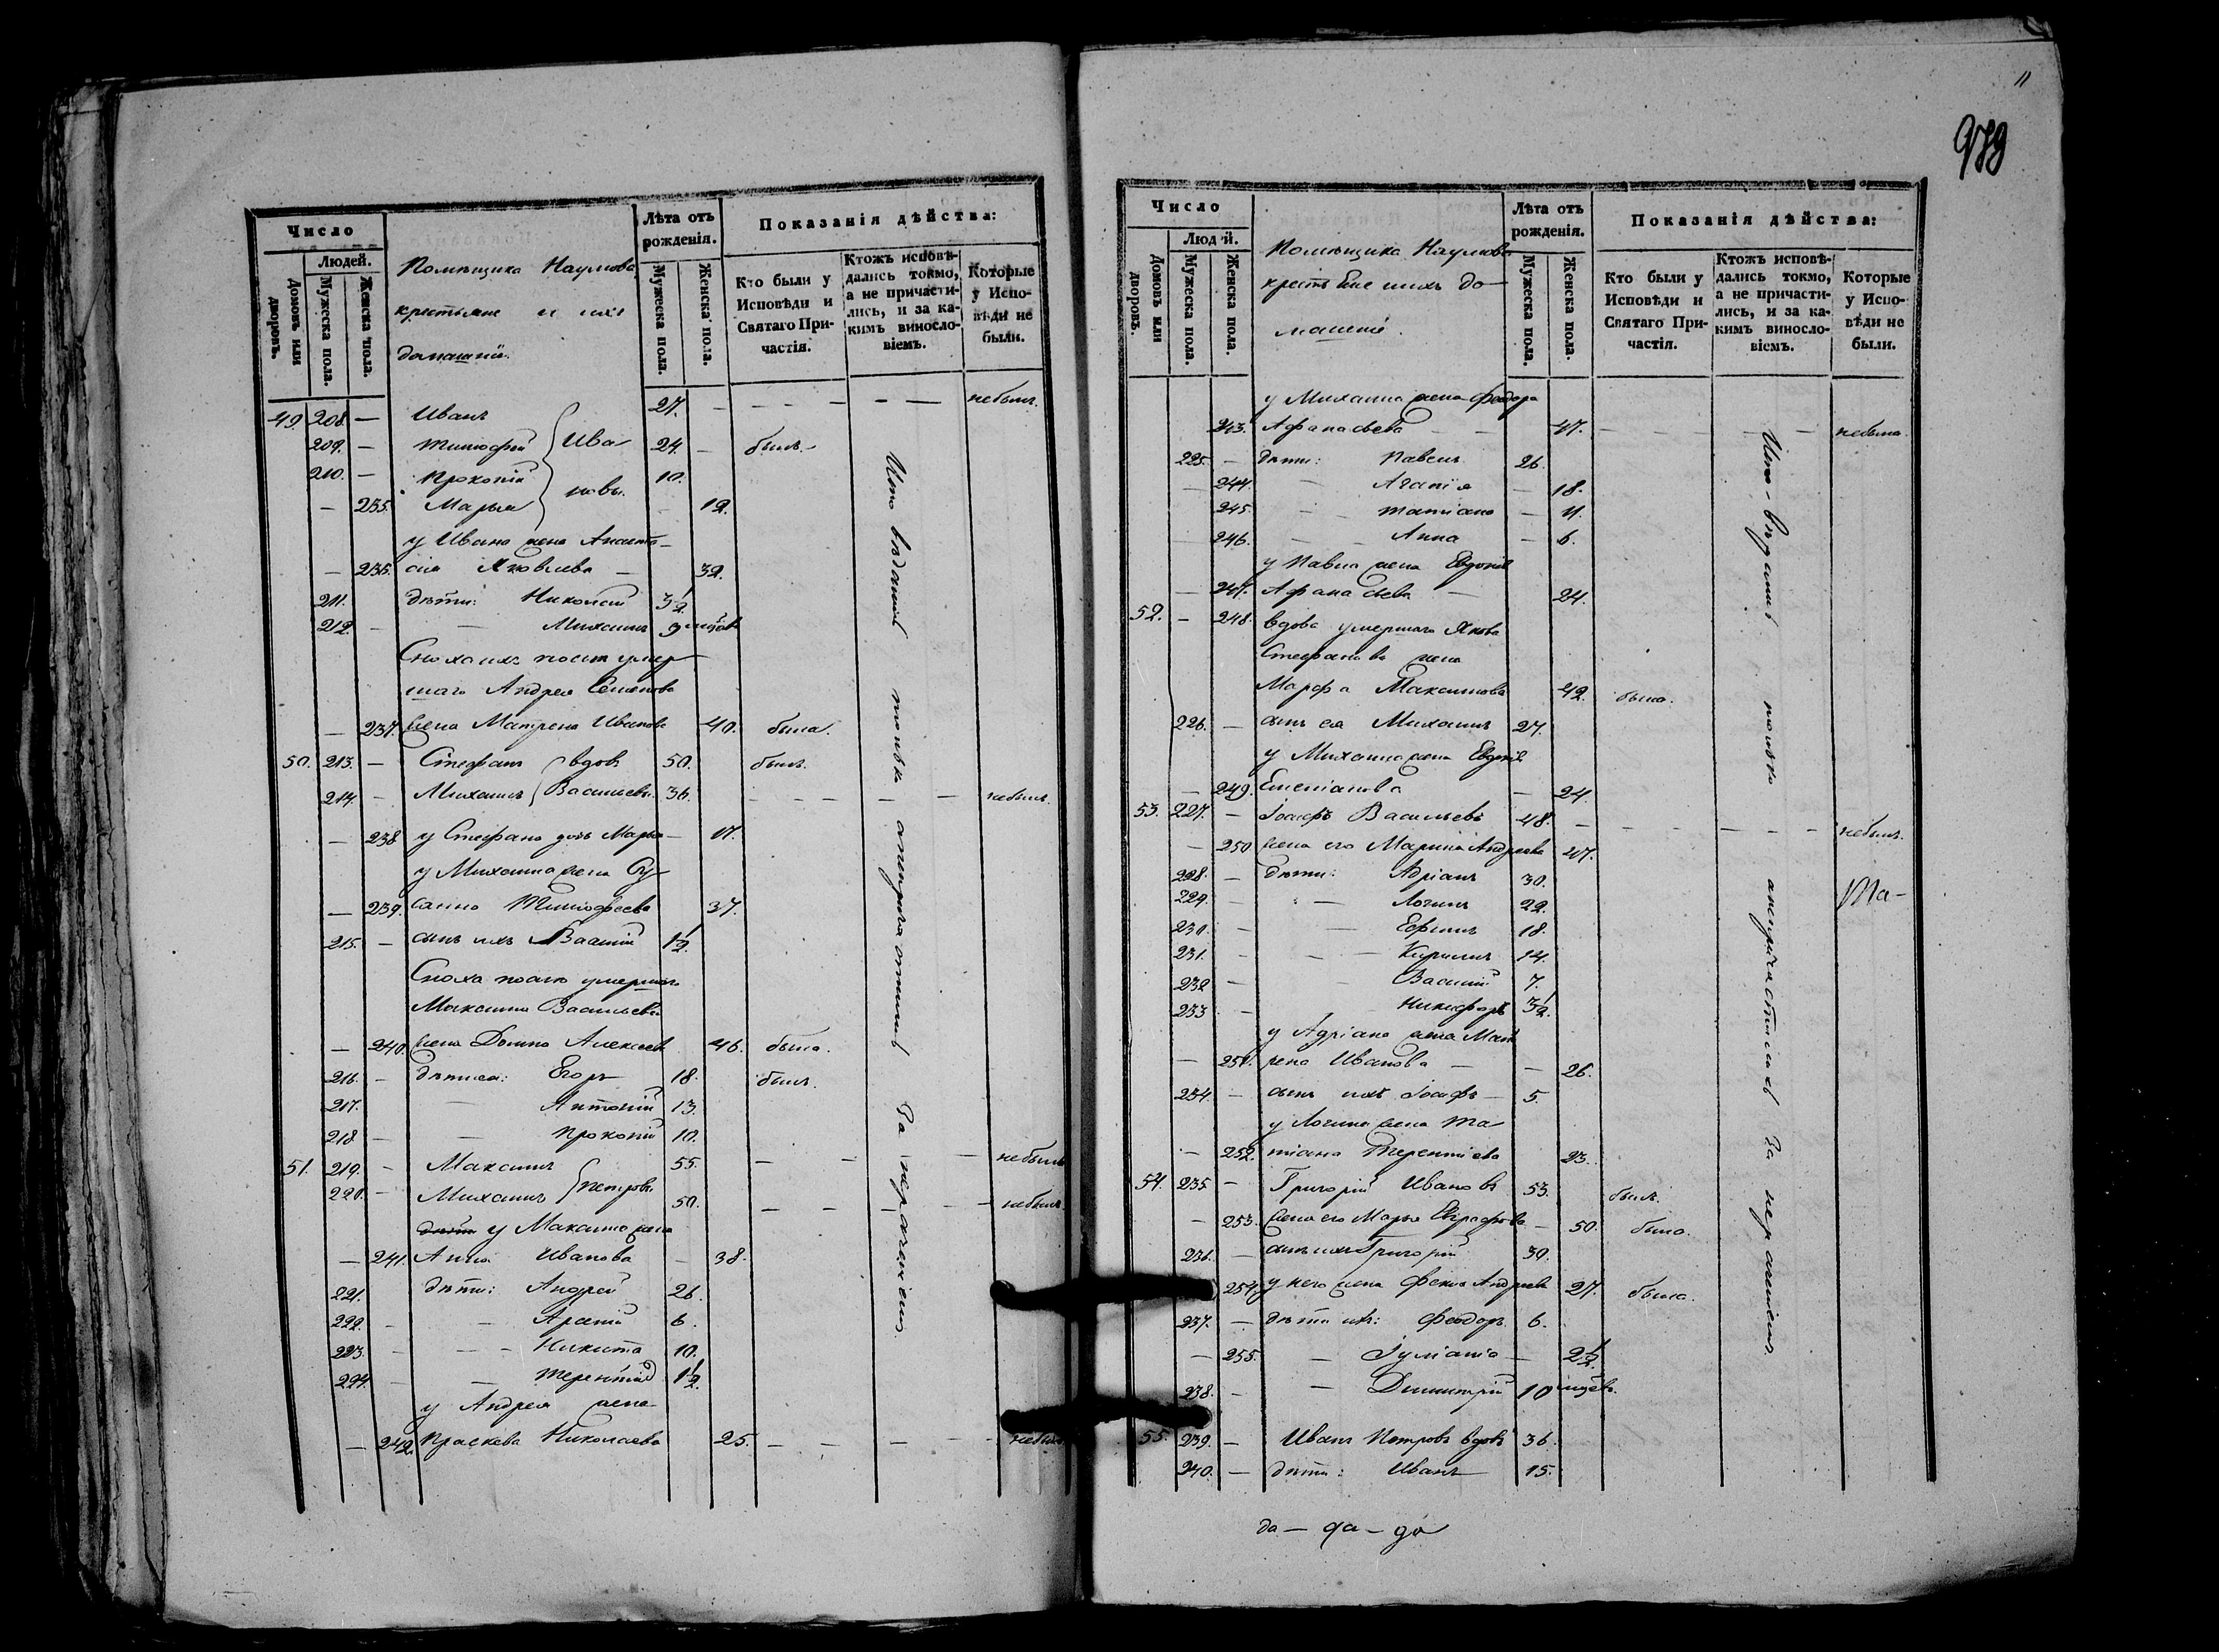 Число
Людей.
Домовъ или дворовъ.
Мужеска пола.
Женска пола.
Помѣщика Наумова
крестьяне и ихъ
домашніи.
Лѣта отъ рожденія.
Мужеска пола.
Женска пола.
Показанія дѣйства:
Кто были у Исповѣди и Святаго Причастія.
Ктожъ исповѣдались токмо, а не причастились, и за какимъ винословіемъ.
Которые у Исповѣди не были.
49. 208. — Иванъ 27. — небылъ.
209. — Тимофей Ива 24. — былъ.
210. — Прокопій новы. 10.
— 235. Марья — 12.
у Ивана жена Анаста-
— 236. сія Яковлева — 32.
211. дѣти: Николай 3½
212. — Михаилъ 9
Сноха ихъ послѣ умер
шаго Андрея Семенова
— 237. жена Матрена Иванова 40. была.
50. 213. — Стефанъ вдовъ 50. былъ.
214. — Михаилъ Васильевы. 36. — небылъ.
— 238 у Стефана дочь Марья — 17.
у Михаила жена Су-
— 239. санна Тимофеева 37.
215. — сынъ ихъ Василій 1½
Сноха послѣ умершаго
Максима Васильева
— 240. жена Домна Алексеева 46. была.
216. — дѣти ея: Егоръ 18. былъ.
217. — Антоній 13.
218 — Прокопій 10.
51. 219. — Максимъ 55. — небылъ
220. — Михаилъ Петровы 50. — небылъ.
у Максима жена
— 241. Анна Иванова — 38.
221. дѣти: Андрей 26.
222. — Арсеній 6.
223. — Никита 10.
224. — Терентій 1½
у Андрея жена
— 242. Прасковья Николаева 25. —
За неражденіемъ
Число
Людей.
Домовъ или дворовъ.
Мужеска пола.
Женска пола.
Помѣщика Наумова
домашніе.
Лѣта отъ рожденія.
Мужеска пола.
Женска пола.
Показанія дѣйства:
Кто были у Исповѣди и Святаго Причастія.
Ктожъ исповѣдались токмо, а не причастились, и за какимъ винословіемъ.
Которые у Исповѣди не были.
у Михаила жена Феодора
243. Афанасьева — 47. — небыла.
225. — дѣти: Павелъ 26.
— 244. — Агапія — 18.
245. — Татіана — 11.
246. — Анна — 6.
у Павла жена Евдокія
— 247. Афанасьева — 24.
52. — 248. вдова умершаго Якова
Стефанова жена
Марфа Максимова 42. была.
226. — сынъ ея Михаилъ 27.
у Михаила жена Евдокія
— 249. Емеліанова — 24.
53. 227. — Іосифъ Васильевъ 48. — небылъ.
— 250 жена его Марина Андреева 47.
228. — дѣти: Адріанъ 30.
229. — Логинъ 22.
230. — Ефимъ 18.
231. — Кирилъ 14.
232 — Василій 7.
233 — Никифоръ 3½
у Адріана жена Мат
— 251. рена Иванова — 26.
234. — сынъ ихъ Іосифъ — 5.
у Логина жена Та
— 252. тіана Терентіева 23.
54. 235 — Григорій Ивановъ 53. былъ.
— 253. жена его Марья Евграфова — 50. была.
236. — сынъ ихъ Григорій 30.
254. у него жена Фекла Андреева 27. была.
237. — дѣти ихъ: Феодоръ 6.
— 255. — Іуліанія — 2½
238. — Димитрій 10
55. 239. — Иванъ Петровъ вдовъ 36.
240. — дѣти: Иванъ 15.
да — да — да
11